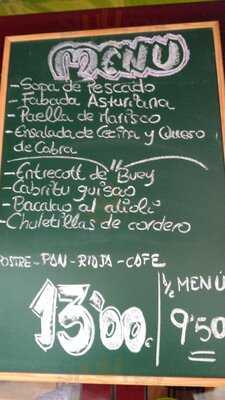 MENU
- Sopa de Pescado
- Fabada Asturiana
- Paella de Marisco
- Ensalada de Cecina y Queso
de Cabra
- Entrecott de Buey
- Cabritu guisao
- Bacalao al alioli
- Chuletillas de cordero
POSTRE - PAN - RIOJA - CAFE
13'00 €
1/2 MENÚ
9'50